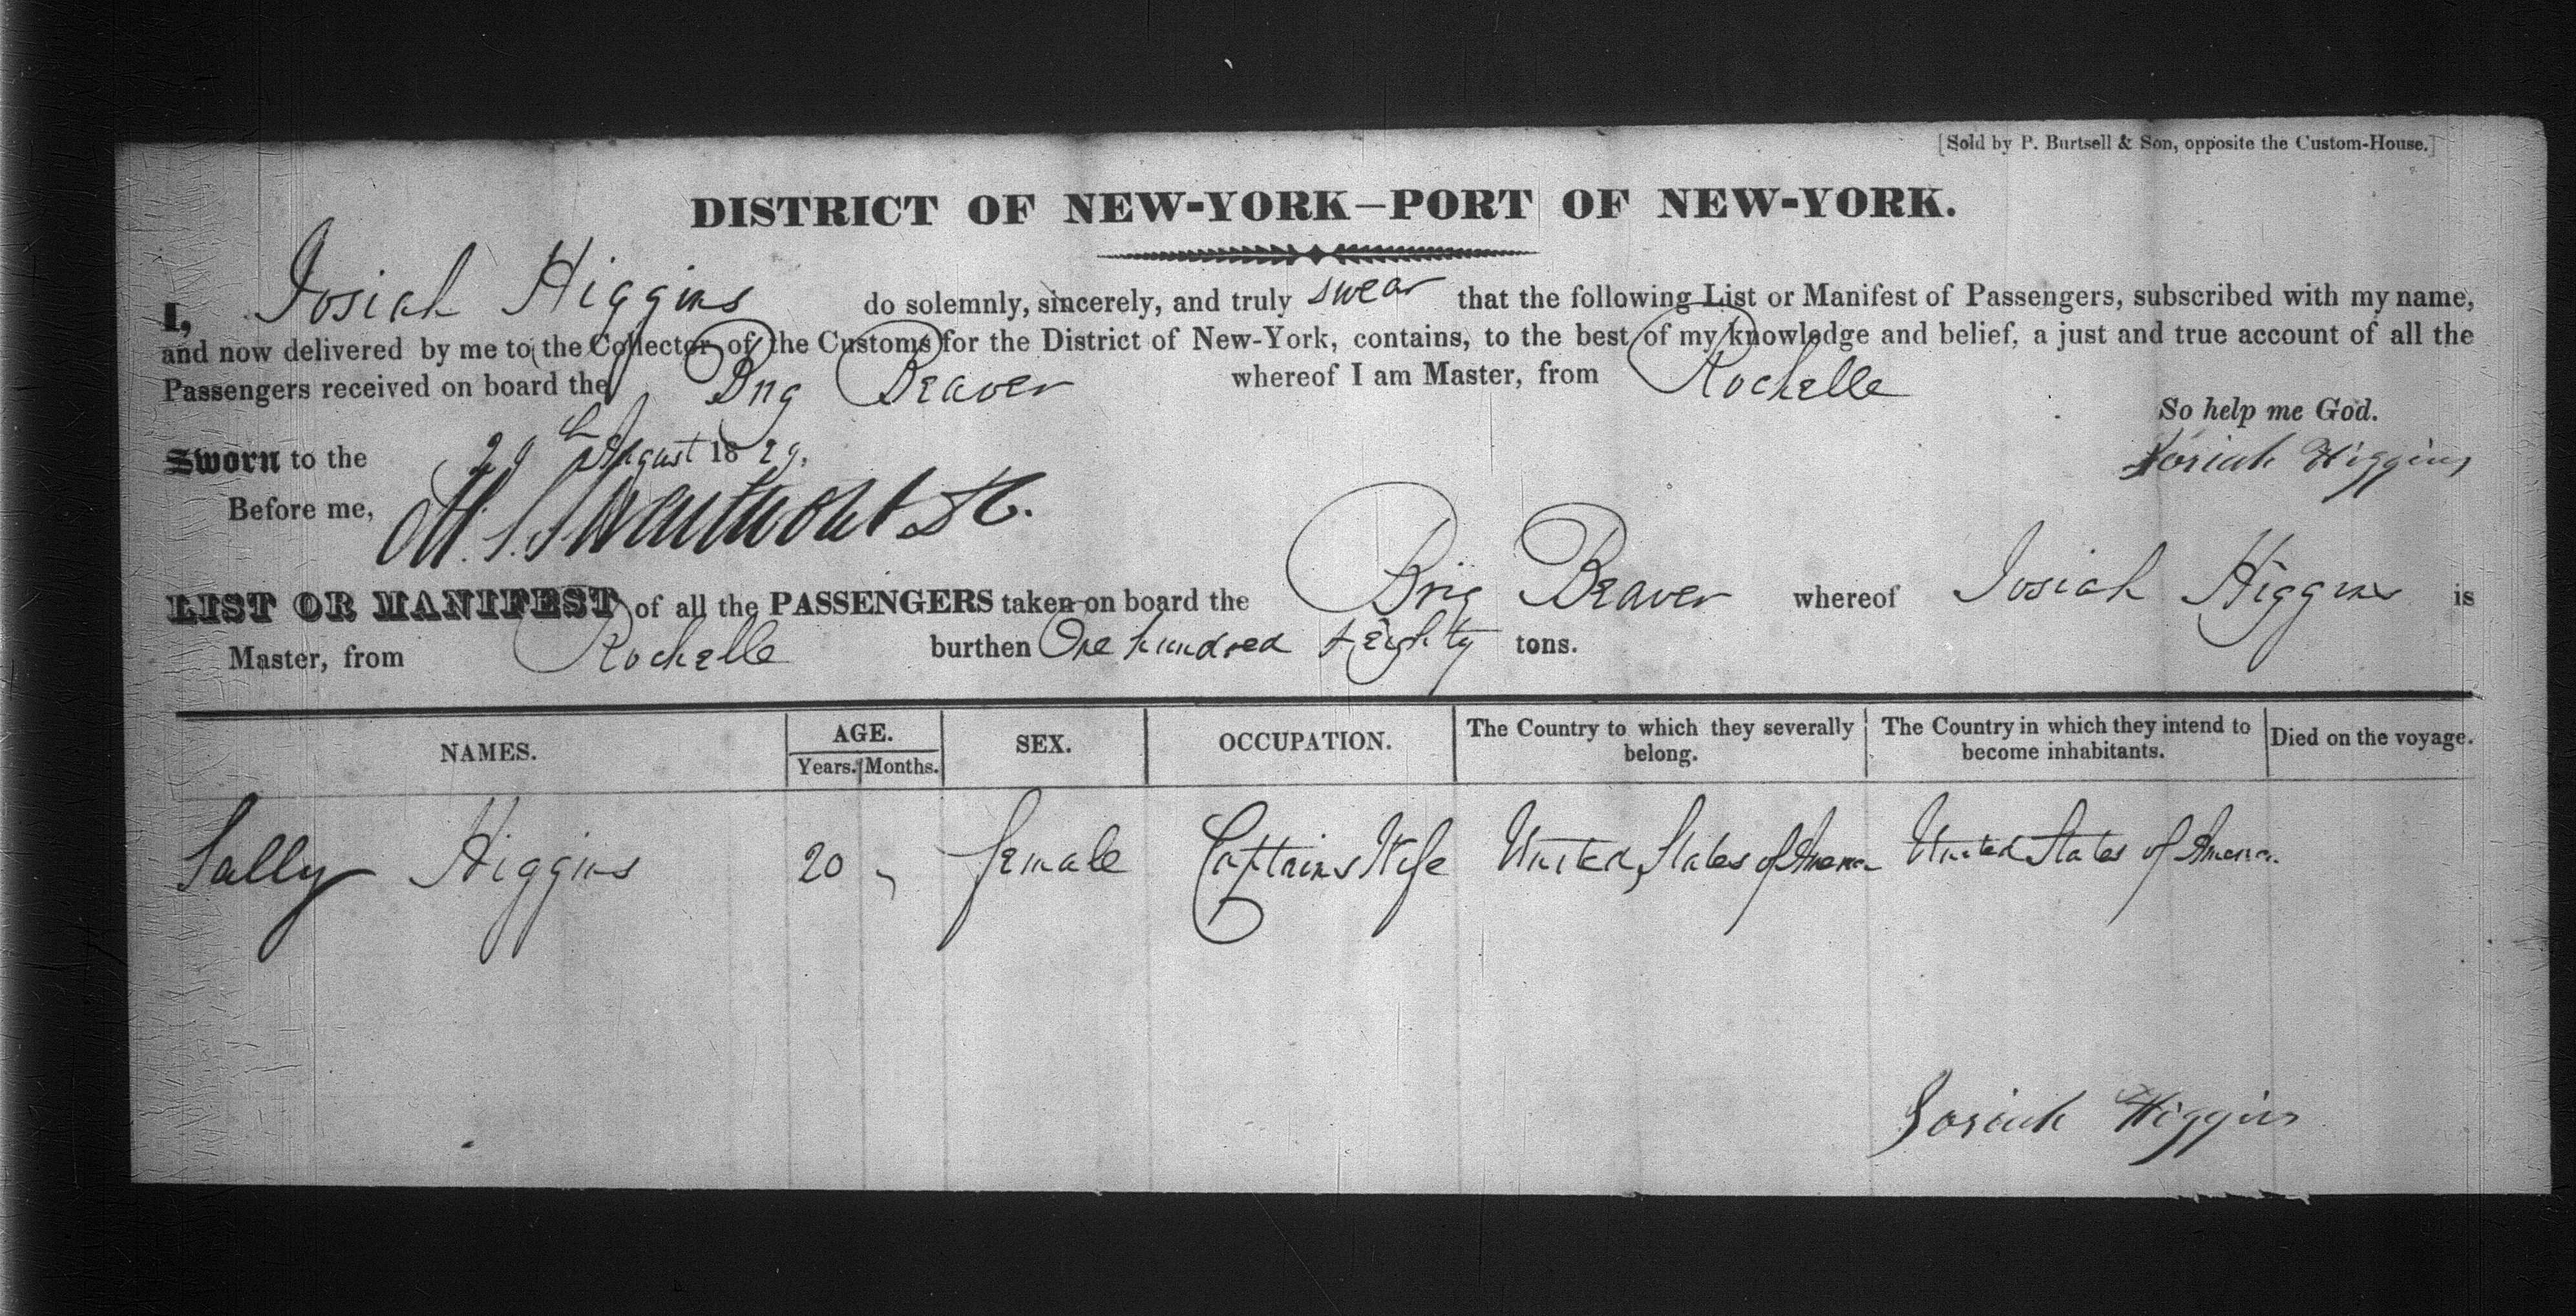 [Sold by P. Burtsell & Son, opposite the Custom-House.]
DISTRICT OF NEW-YORK—PORT OF NEW-YORK.
I, Josiah Higgins do solemnly, sincerely, and truly swear that the following List or Manifest of Passengers, subscribed with my name,
and now delivered by me to the Collector of the Customs for the District of New-York, contains, to the best of my knowledge and belief, a just and true account of all the
Passengers received on board the Brig Beaver whereof I am Master, from Rochelle
So help me God.
Sworn to the 29th August 1829.
Josiah Higgins
Before me, Swartwout
LIST OR MANIFEST of all the PASSENGERS taken on board the Brig Beaver whereof Josiah Higgins is
Master, from Rochelle burthen One hundred & Eighty tons.
NAMES. AGE. Years. Months. SEX. OCCUPATION. The Country to which they severally belong. The Country in which they intend to become inhabitants. Died on the voyage.
Sally Higgins 20 female Captains Wife United States of America United States of America
Josiah Higgins